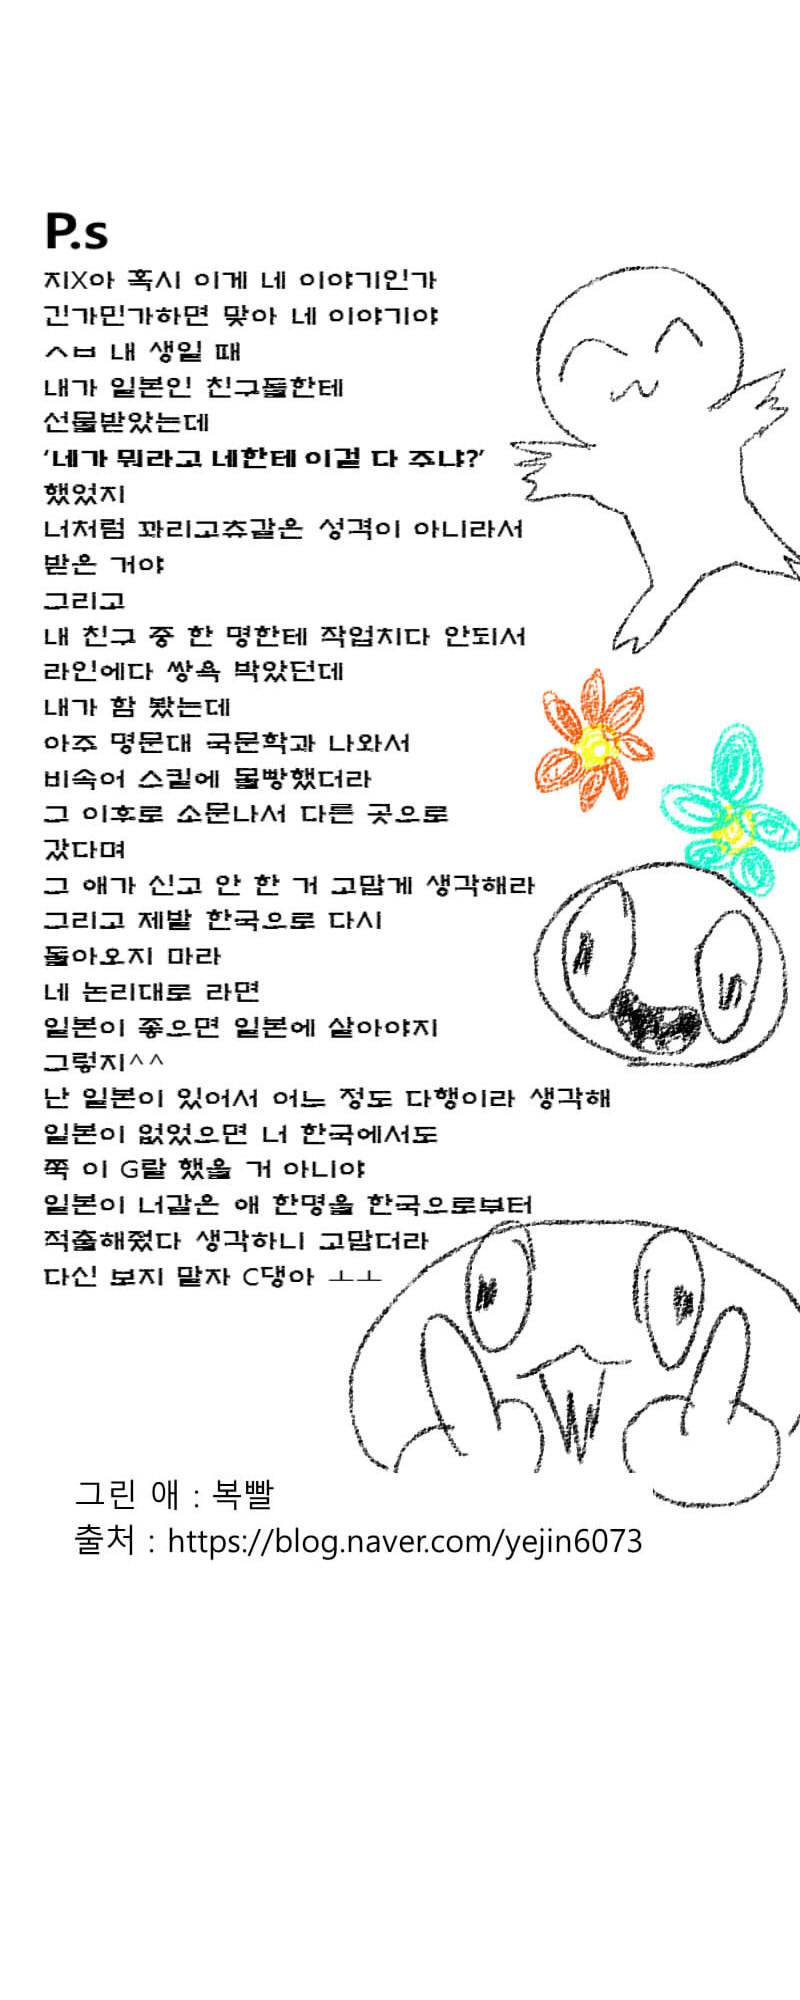 P.s
지X아 혹시 이게 네 이야기인가
긴가민가하면 맞아 네 이야기야
ㅅㅂ 내 생일 때
내가 일본인 친구들한테
선물받았는데
‘네가 뭐라고 네한테 이걸 다 주냐?’
했었지
너처럼 꽈리고츄같은 성격이 아니라서
받은 거야
그리고
내 친구 중 한 명한테 작업치다 안되서
라인에다 쌍욕 박았던데
내가 함 봤는데
아주 명문대 국문학과 나와서
비속어 스킬에 몰빵했더라
그 이후로 소문나서 다른 곳으로
갔다며
그 애가 신고 안 한 거 고맙게 생각해라
그리고 제발 한국으로 다시
돌아오지 마라
네 논리대로 라면
일본이 좋으면 일본에 살아야지
그렇지^^
난 일본이 있어서 어느 정도 다행이라 생각해
일본이 없었으면 너 한국에서도
쭉 이 G랄 했을 거 아니야
일본이 너같은 애 한명을 한국으로부터
적출해줬다 생각하니 고맙더라
다신 보지 말자 C댕아 ㅗㅗ
그린 애 : 복빨
출처 : https://blog.naver.com/yejin6073